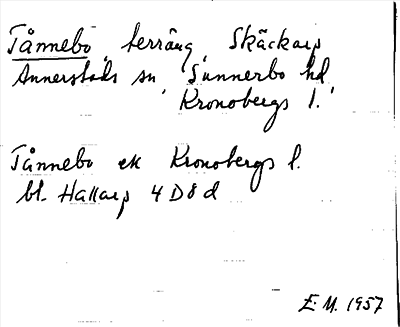 Tånnebo, terräng, Skäckarp
Annerstads sn, Sunnerbo hd,
Kronobergs l.
Tånnebo ek Kronobergs l.
bl. Hallarp 4 D 8 d
E. M. 1957